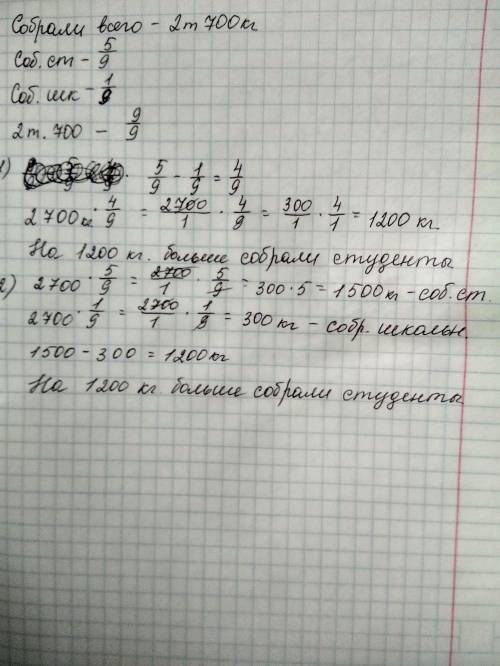 Собрали всего - 2т 700кг
Соб. ст - 5/9
Соб. шк - 1/9
2т. 700 - 9/9
1) 5/9 - 1/9 = 4/9
2700кг · 4/9 = 2700/1 · 4/9 = 300/1 · 4/1 = 1200 кг.
На 1200 кг. больше собрали студенты
2) 2700 · 5/9 = 2700/1 · 5/9 = 300 · 5 = 1500кг - соб. ст.
2700 · 1/9 = 2700/1 · 1/9 = 300 кг - собр. школьн.
1500 - 300 = 1200кг
На 1200 кг. больше собрали студенты